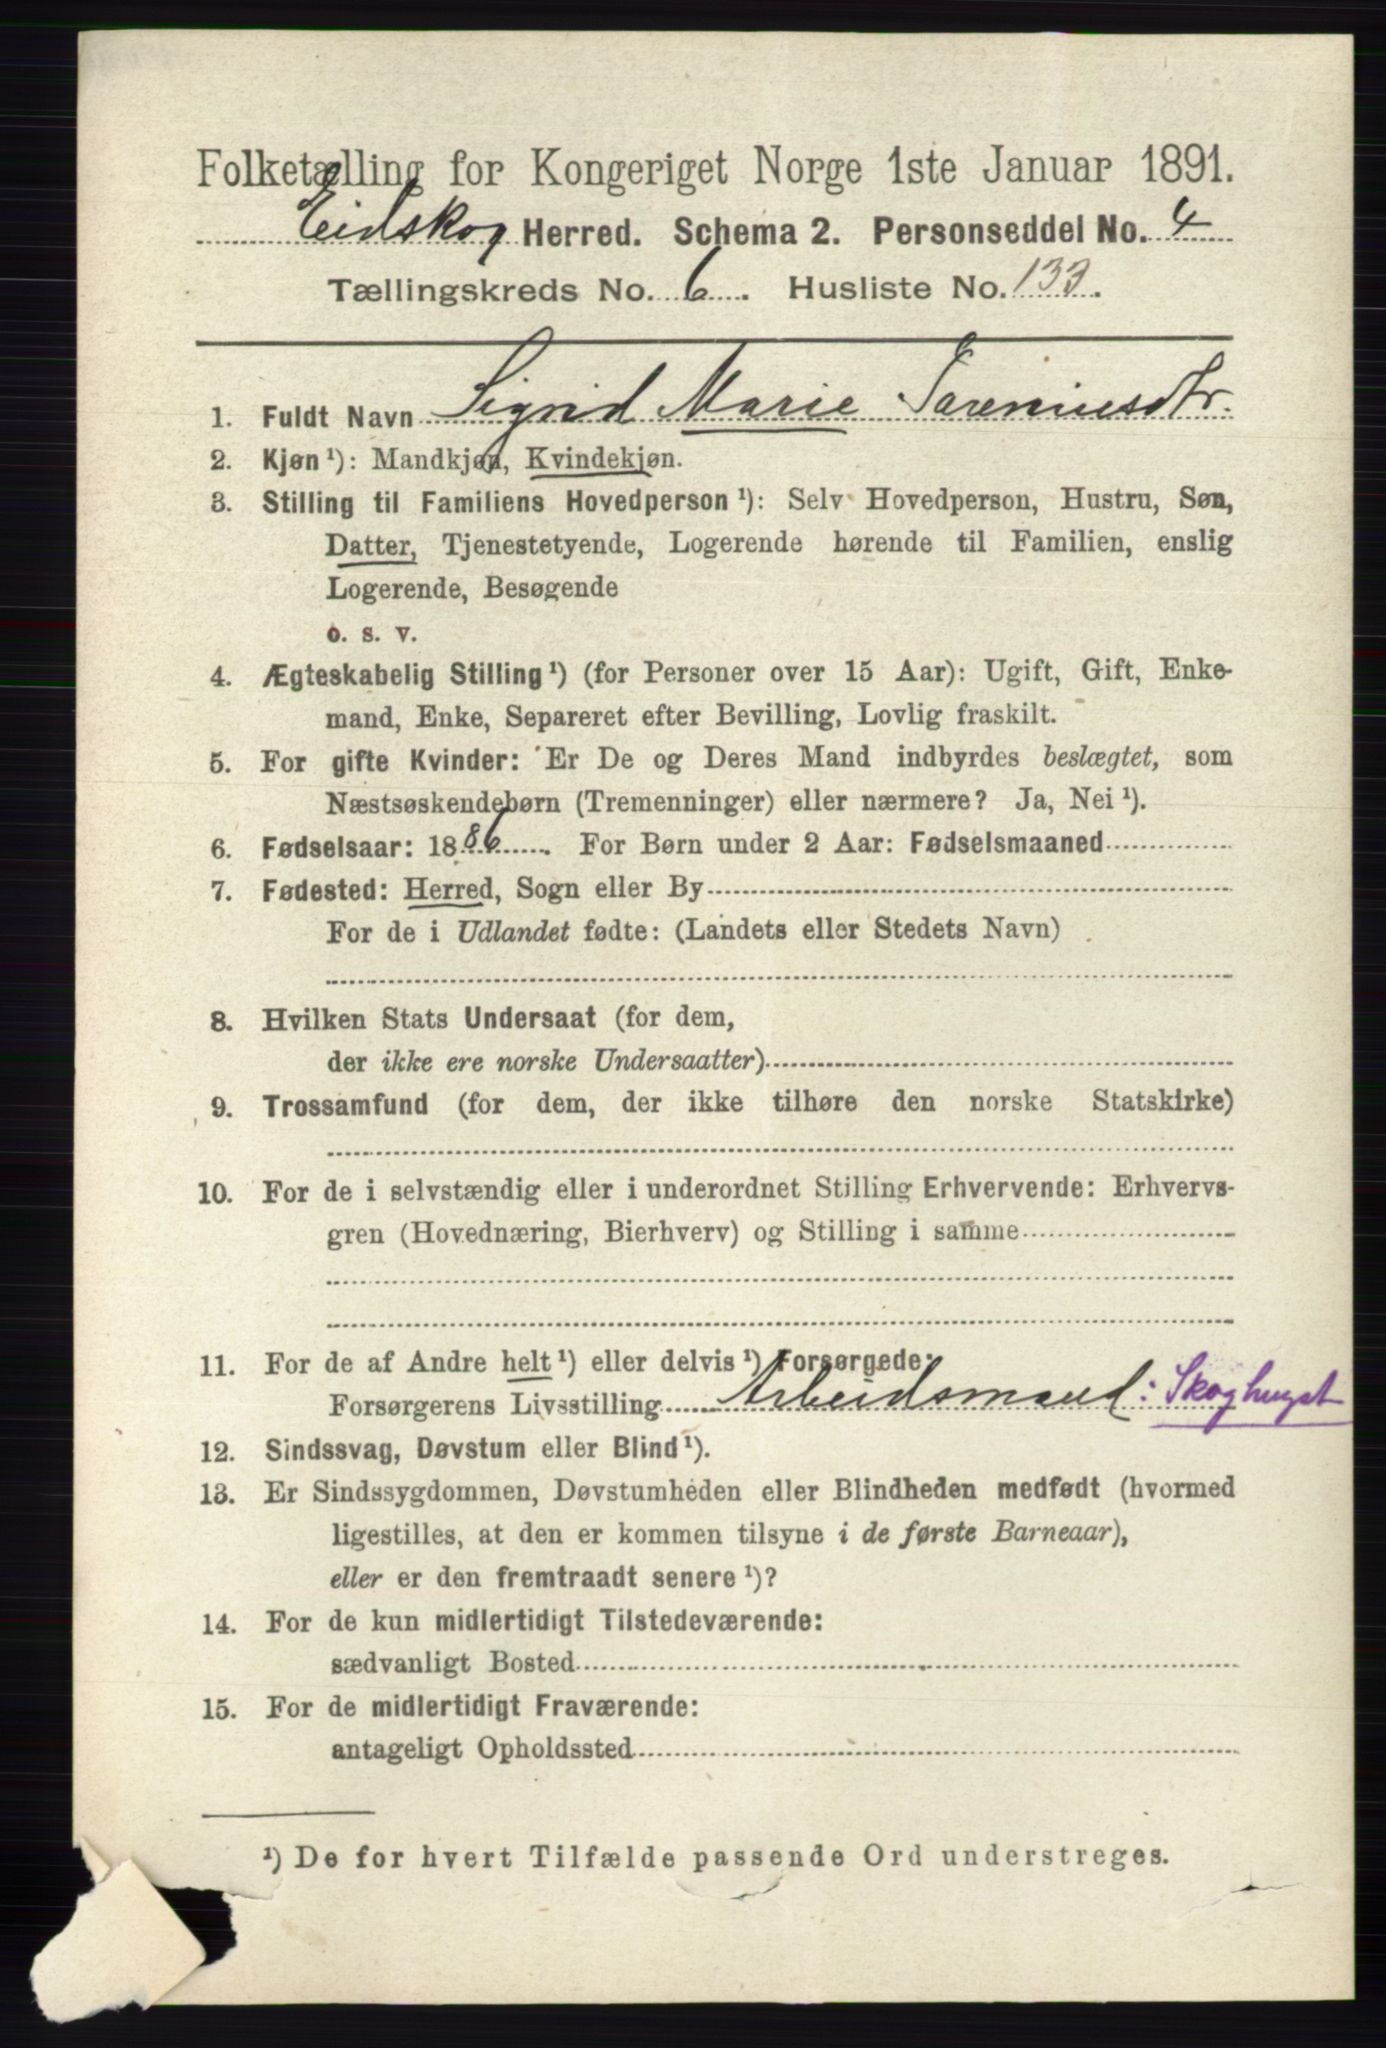 Folketælling for Kongeriget Norge 1ste Januar 1891.
Eidskog Herred. Schema 2. Personseddel No. 4
Tællingskreds No. 6. Husliste No. 133.
1. Fuldt Navn Sigrid Marie Tareniusdtr.
2. Kjøn ¹): Mandkjøn, Kvindekjøn.
3. Stilling til Familiens Hovedperson ¹): Selv Hovedperson, Hustru, Søn,
Datter, Tjenestetyende, Logerende hørende til Familien, enslig
Logerende, Besøgende
o. s. v.
4. Ægteskabelig Stilling ¹) (for Personer over 15 Aar): Ugift, Gift, Enke-
mand, Enke, Separeret efter Bevilling, Lovlig fraskilt.
5. For gifte Kvinder: Er De og Deres Mand indbyrdes beslægtet, som
Næstsøskendebørn (Tremenninger) eller nærmere? Ja, Nei ¹).
6. Fødselsaar: 1886. For Børn under 2 Aar: Fødselsmaaned
7. Fødested: Herred, Sogn eller By
For de i Udlandet fødte: (Landets eller Stedets Navn)
8. Hvilken Stats Undersaat (for dem,
der ikke ere norske Undersaatter)
9. Trossamfund (for dem, der ikke tilhøre den norske Statskirke)
10. For de i selvstændig eller i underordnet Stilling Erhvervende: Erhvervs-
gren (Hovednæring, Bierhverv) og Stilling i samme
11. For de af Andre helt ¹) eller delvis ¹) Forsørgede:
Forsørgerens Livsstilling Arbeidsmand: Skoghugst
12. Sindssvag, Døvstum eller Blind ¹).
13. Er Sindssygdommen, Døvstumheden eller Blindheden medfødt (hvormed
ligestilles, at den er kommen tilsyne i de første Barneaar),
eller er den fremtraadt senere ¹)?
14. For de kun midlertidigt Tilstedeværende:
sædvanligt Bosted
15. For de midlertidigt Fraværende:
antageligt Opholdssted
¹) De for hvert Tilfælde passende Ord understreges.